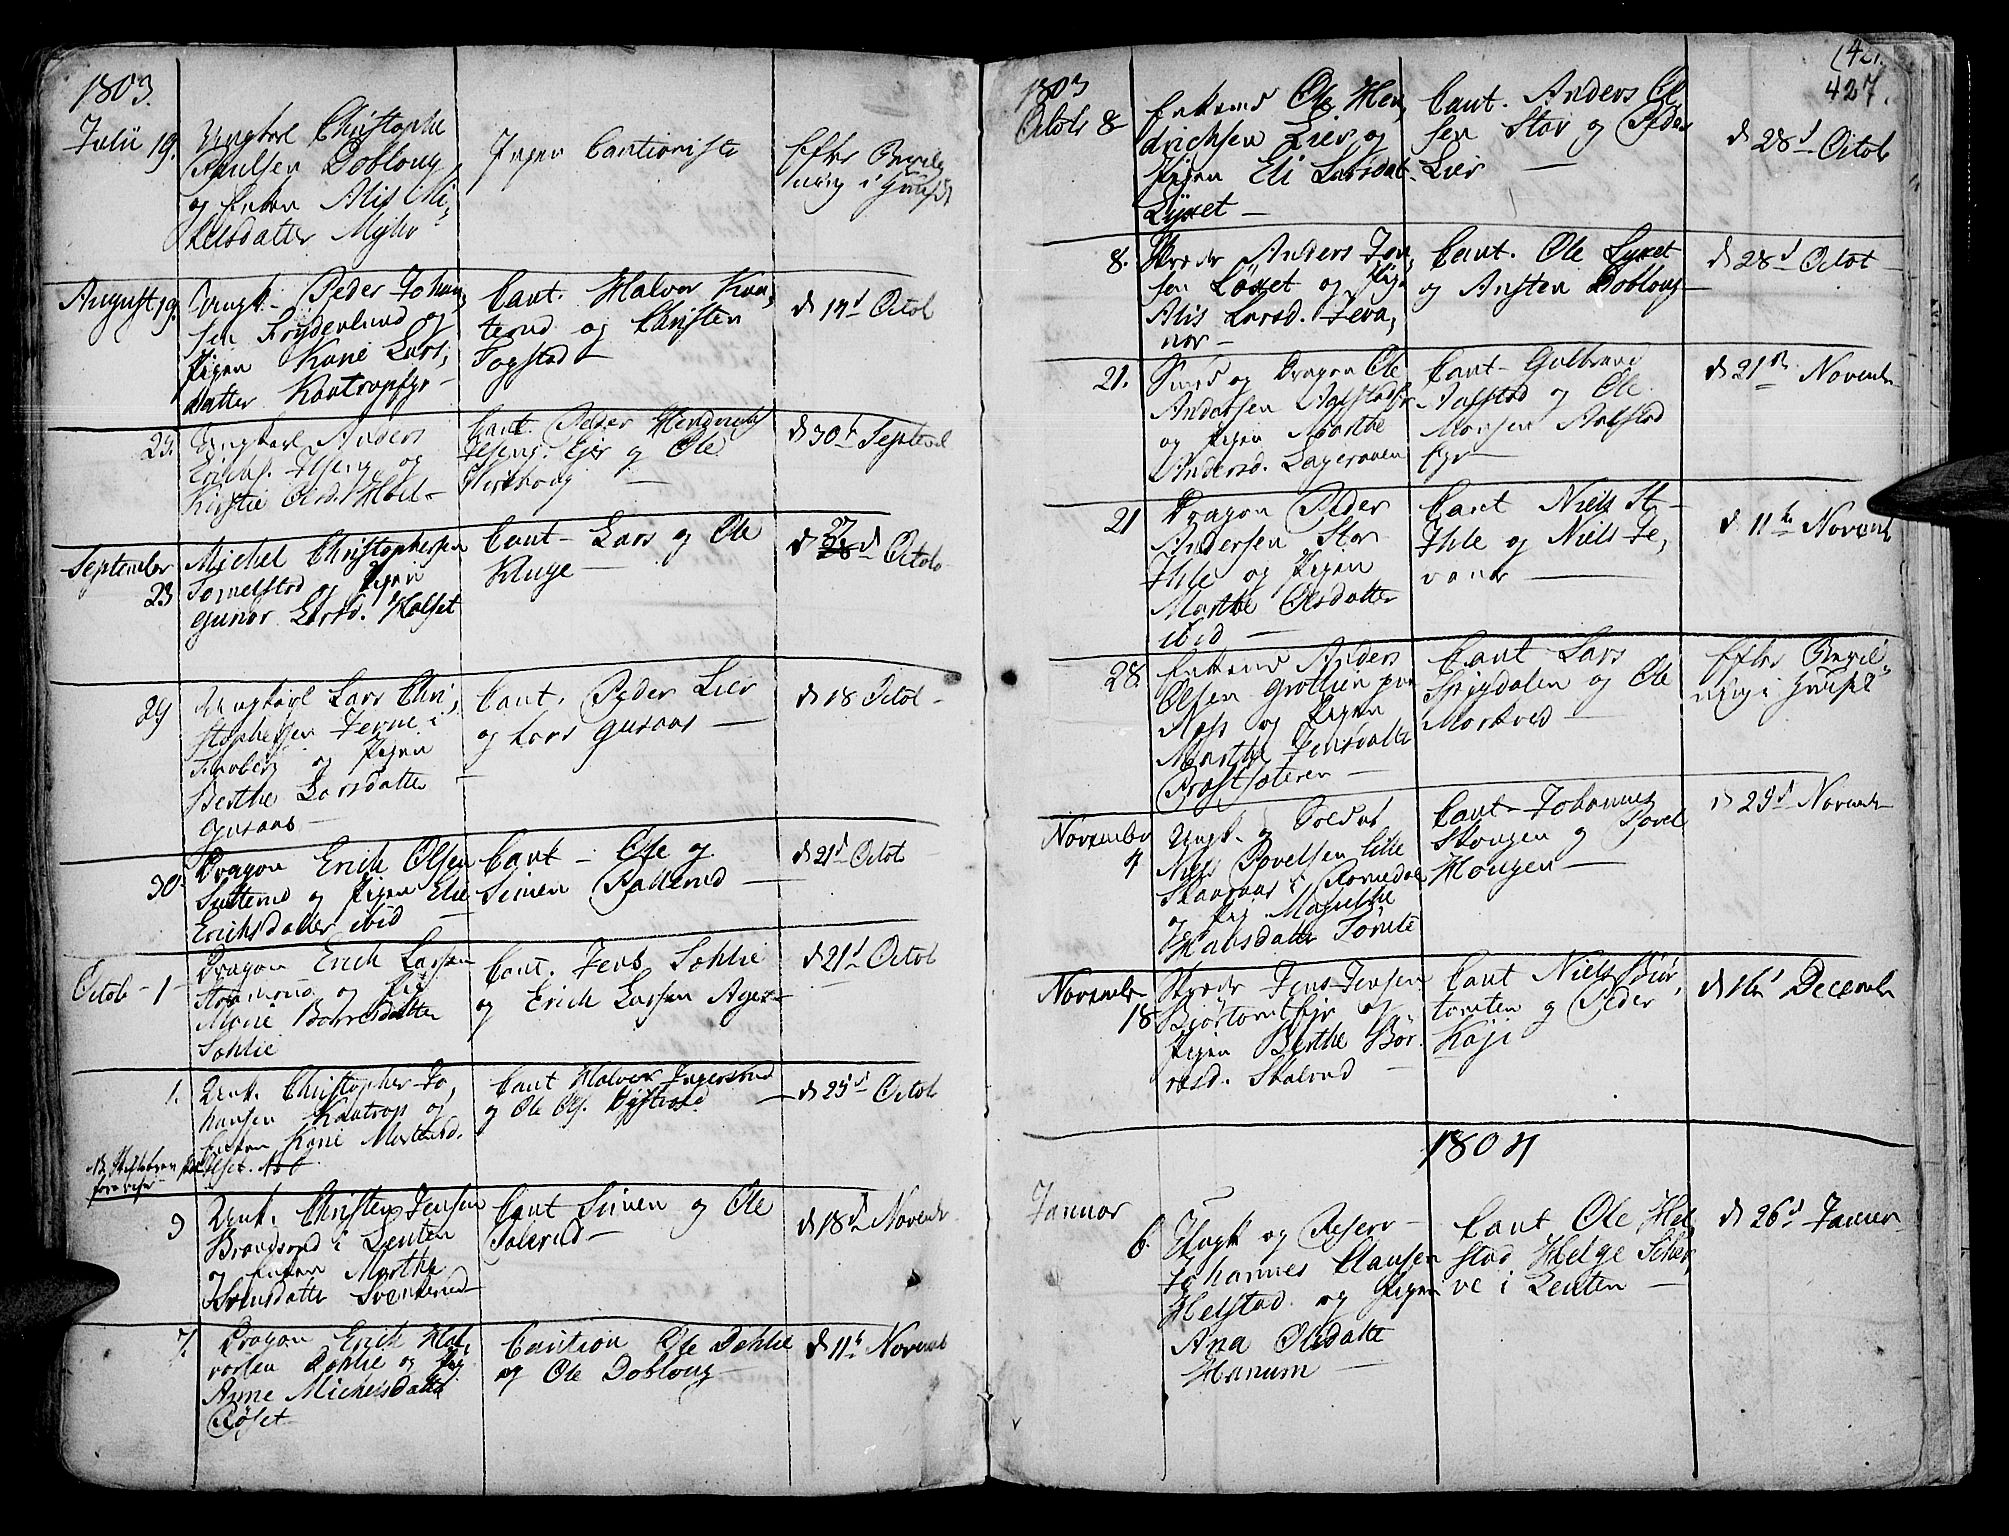 1803.
Julii 19.
Ungkarl Christophe
Paulsen Doblong
og Enken Alis Mi-
kelsdatter Myhr
Ingen Cautioniste
Efter Bevilg
ning i Huuset
August 19.
Ungk. Peder Johan,
sen Fryderlund og
Pigen Kari Lars,
datter Kantropeje
Caut. Halvor Kan,
terud og Christen
Fogstad
d 14d Octob
23.
Ungkarl Anders
Erichs. Ilseng og
Kirstie Olsd. Hoel
Caut. Peder Hendrichs
Ilseng Ejer og Ole
d 30te Septemb
September
23
Michel Christophersen
Tomelstad og Pigen
Gunor Larsd. Halset
Caut Lars og Ole
Kluge
27
d 28 d Octob
29
Ungkarl Lars Chri
stophersen Ferne i
og Pigen
Berthe Larsdatter
Gusaas
Caut. Peder Lier
og Lars Gusaas
d 18 Octob
30
Dragon Erich Olsen
Sutterud og Pigen Elie
Erichsdatter ibid
Caut Ole og
Simen Pallerud
d 21d Octob
Octob 1
Dragon Erich Larsen
og Pig
Marie Borresdatter
Sohlie
Caut. Jens Sohlie
og Erich Larsen Ager
d 21d Octob
1.
Enk. Christopher Jo,
hansen Kantrop og
Enken Kari Mortensd.
Caut Halvor Ingersrud
og Ole Ols.
d 25d Octob
9
Enk. Christen Jensen
Brandsrud i Leuten
og Enken Marthe
Hansdatte Svenkerud
Caut Simen og Ole
Salerud
d 18d Novemb
7.
Dragon Erich Hal,
vorsen Dahlie og Pig
Anne Michelsdatte
Røset
Caution Ole Dahlie
og Ole Doblong
d 11te Novemb
1803
427.
Octob 8
Enkemd Ole Hen,
drichsen Lier og
Pigen Eli Larsdat.
Lyset
Caut. Anders Ol
sen Stor og Peder
Lier
d 28d Octob
8.
Skredr Anders Jen,
sen Løset og Pige
Alis Larsd. Jeva,
nor
Caut. Ole Lyset
og Ansten Doblong
d 28d Octob
21.
Smed og Dragon Ole
Andersen Aalstadejr
og Pigen Marthe
Andersd. Lageraaen
Caut Gulbrand
Aalstad og Ole
Monsen Aalstad
Ejr
d 21de Novembr
21
Dragon Peder
Andersen Stor
Ihle og Pigen
Marthe Olsdatter
ibid
Caut Niels St
Ihle og Niels Je,
vanor
d 11te Novemb
28
Enkemd Anders
Olsen Grotlien paa
Næs og Pigen
Marthe Jensdatte
Prostsæteren
Caut Lars
Spigdalen og Ole
Morkved
Efter Bevil-
ning i Huuset
Novembr
4
Ungk. og Soldat
Niels Povelsen lille
Skaaraas i Romedal
og Pig. Magrethe
Hansdatte Tomte
Caut Johannes
Skougen og Povel
Hougen
d 29d Novemb
Novembr
18
Skredr Jens Jensen
Biørtomtejr og
Pigen Berthe Bør
resd. Skalrud
Caut Niels Biør,
tomten og Peder
Køji
d 16d Decembr
1804
Januar
6.
Ungk og Reserv
Johannes Clausen
Helstad og Pigen
Ana Olsdatte
Hanum
Caut Ole Hel
stad Helge Scher,
ve i Leuten
d 26d Januar